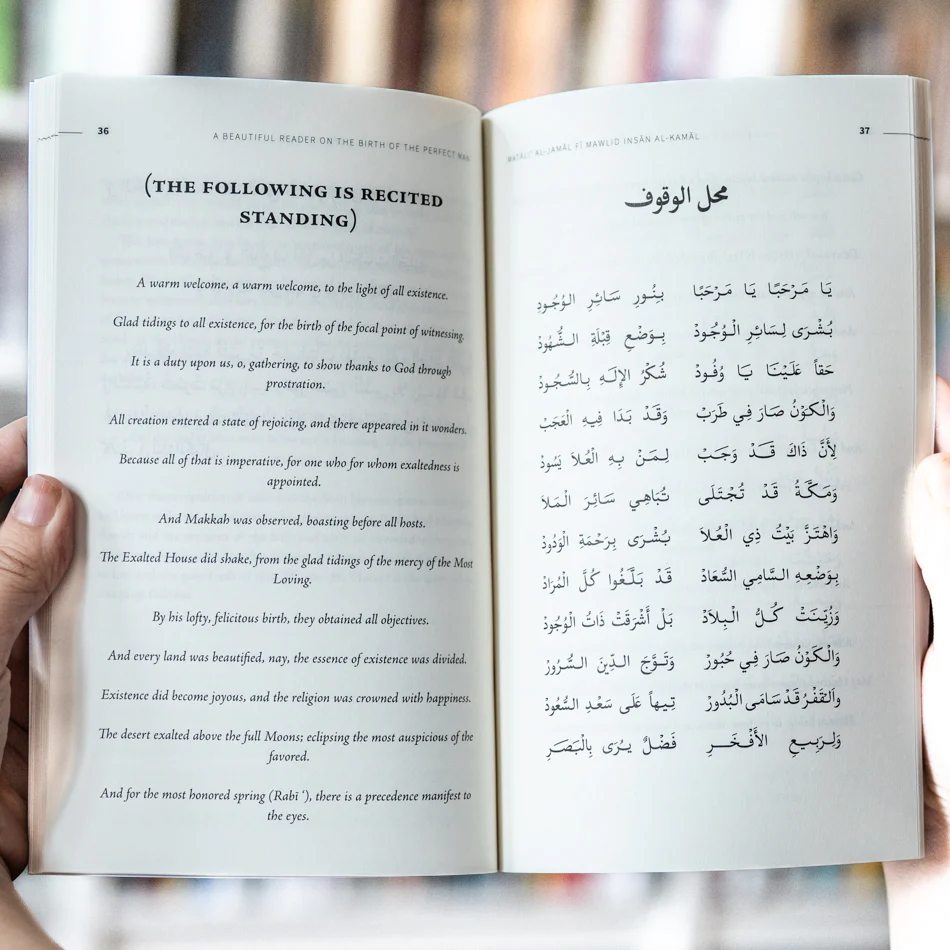 36
A BEAUTIFUL READER ON THE BIRTH OF THE PERFECT MAN
(THE FOLLOWING IS RECITED
STANDING)
A warm welcome, a warm welcome, to the light of all existence.
Glad tidings to all existence, for the birth of the focal point of witnessing.
It is a duty upon us, o, gathering, to show thanks to God through
prostration.
All creation entered a state of rejoicing, and there appeared in it wonders.
Because all of that is imperative, for one who for whom exaltedness is
appointed.
And Makkah was observed, boasting before all hosts.
The Exalted House did shake, from the glad tidings of the mercy of the Most
Loving.
By his lofty, felicitous birth, they obtained all objectives.
And every land was beautified, nay, the essence of existence was divided.
Existence did become joyous, and the religion was crowned with happiness.
The desert exalted above the full Moons; eclipsing the most auspicious of the
favored.
And for the most honored spring (Rabī ‘), there is a precedence manifest to
the eyes.
AL-JAMĀL FĪ MAWLID INSĀN AL-KAMĀL
37
محل الوقوف
يَا مَرْحَبًا يَا مَرْحَبًا بِنُورِ سَائِرِ الوُجُودِ
بُشْرَى لِسَائِرِ الْوُجُودْ بِوَضْعِ قِبْلَةِ الشُّهُودْ
حَقاً عَلَيْنَا يَا وُفُودْ شُكْرُ الإِلَهِ بِالسُّجُودْ
وَالْكَوْنُ صَارَ فِي طَرَبْ وَقَدْ بَدَا فِيهِ الْعَجَبْ
لِأَنَّ ذَاكَ قَدْ وَجَبْ لِمَنْ بِهِ الْعُلَا يَسُودْ
وَمَكَّةُ قَدْ تُجْتَلَى تُبَاهِي سَائِرَ الْمَلاَ
وَاهْتَزَّ بَيْتُ ذِي الْعُلاَ بُشْرَى بِرَحْمَةِ الْوَدُودْ
بِوَضْعِهِ السَّامِي السُّعَادْ قَدْ بَلَّغُوا كُلَّ الْمُرَادْ
وَزُيِّنَتْ كُلُّ الْبِلاَدْ بَلْ أَشْرَقَتْ ذَاتُ الْوُجُودْ
وَالْكَوْنُ صَارَ فِي حُبُورْ وَتَوَّجَ الدِّينَ السُّرُورْ
وَالقَفْرُ قَدْ سَامَى الْبُدُورْ تِيهاً عَلَى سَعْدِ السُّعُودْ
وَلِرَبِيعِ الأَفْخَرِ فَضْلٌ يُرَى بِالْبَصَرِ